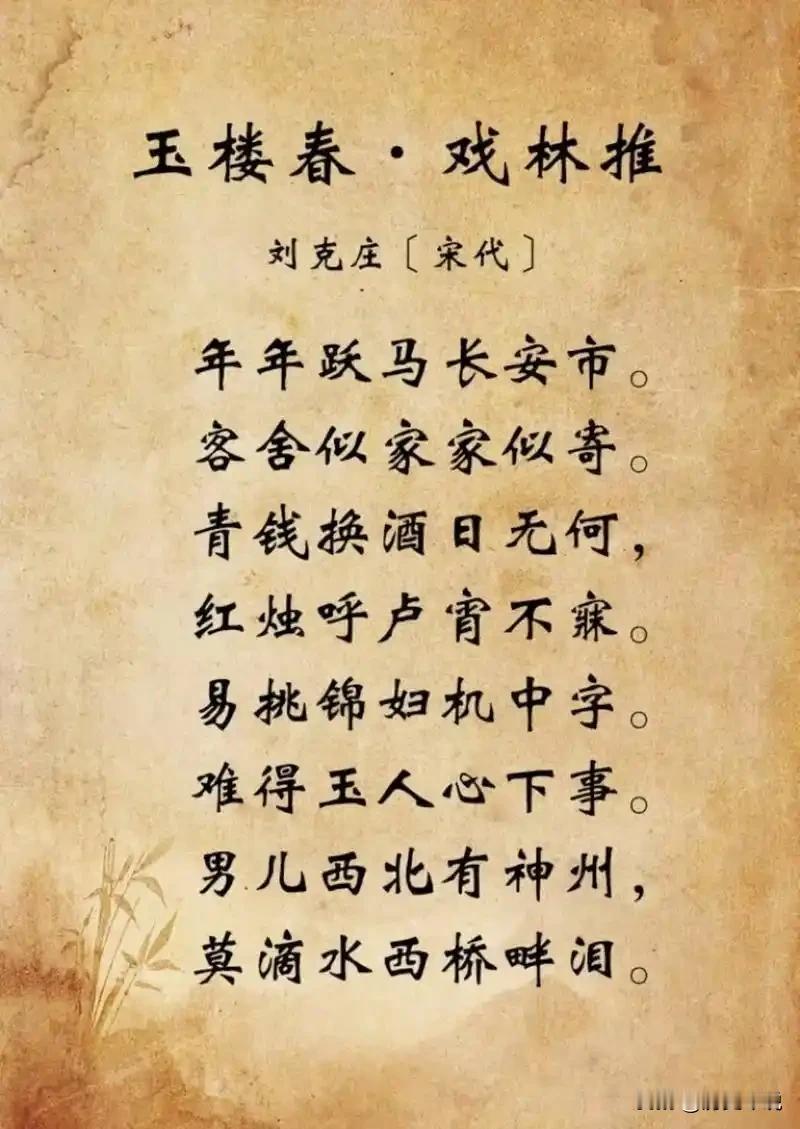 玉楼春·戏林推
刘克庄〔宋代〕
年年跃马长安市。
客舍似家家似寄。
青钱换酒日无何，
红烛呼卢宵不寐。
易挑锦妇机中字。
难得玉人心下事。
男儿西北有神州，
莫滴水西桥畔泪。